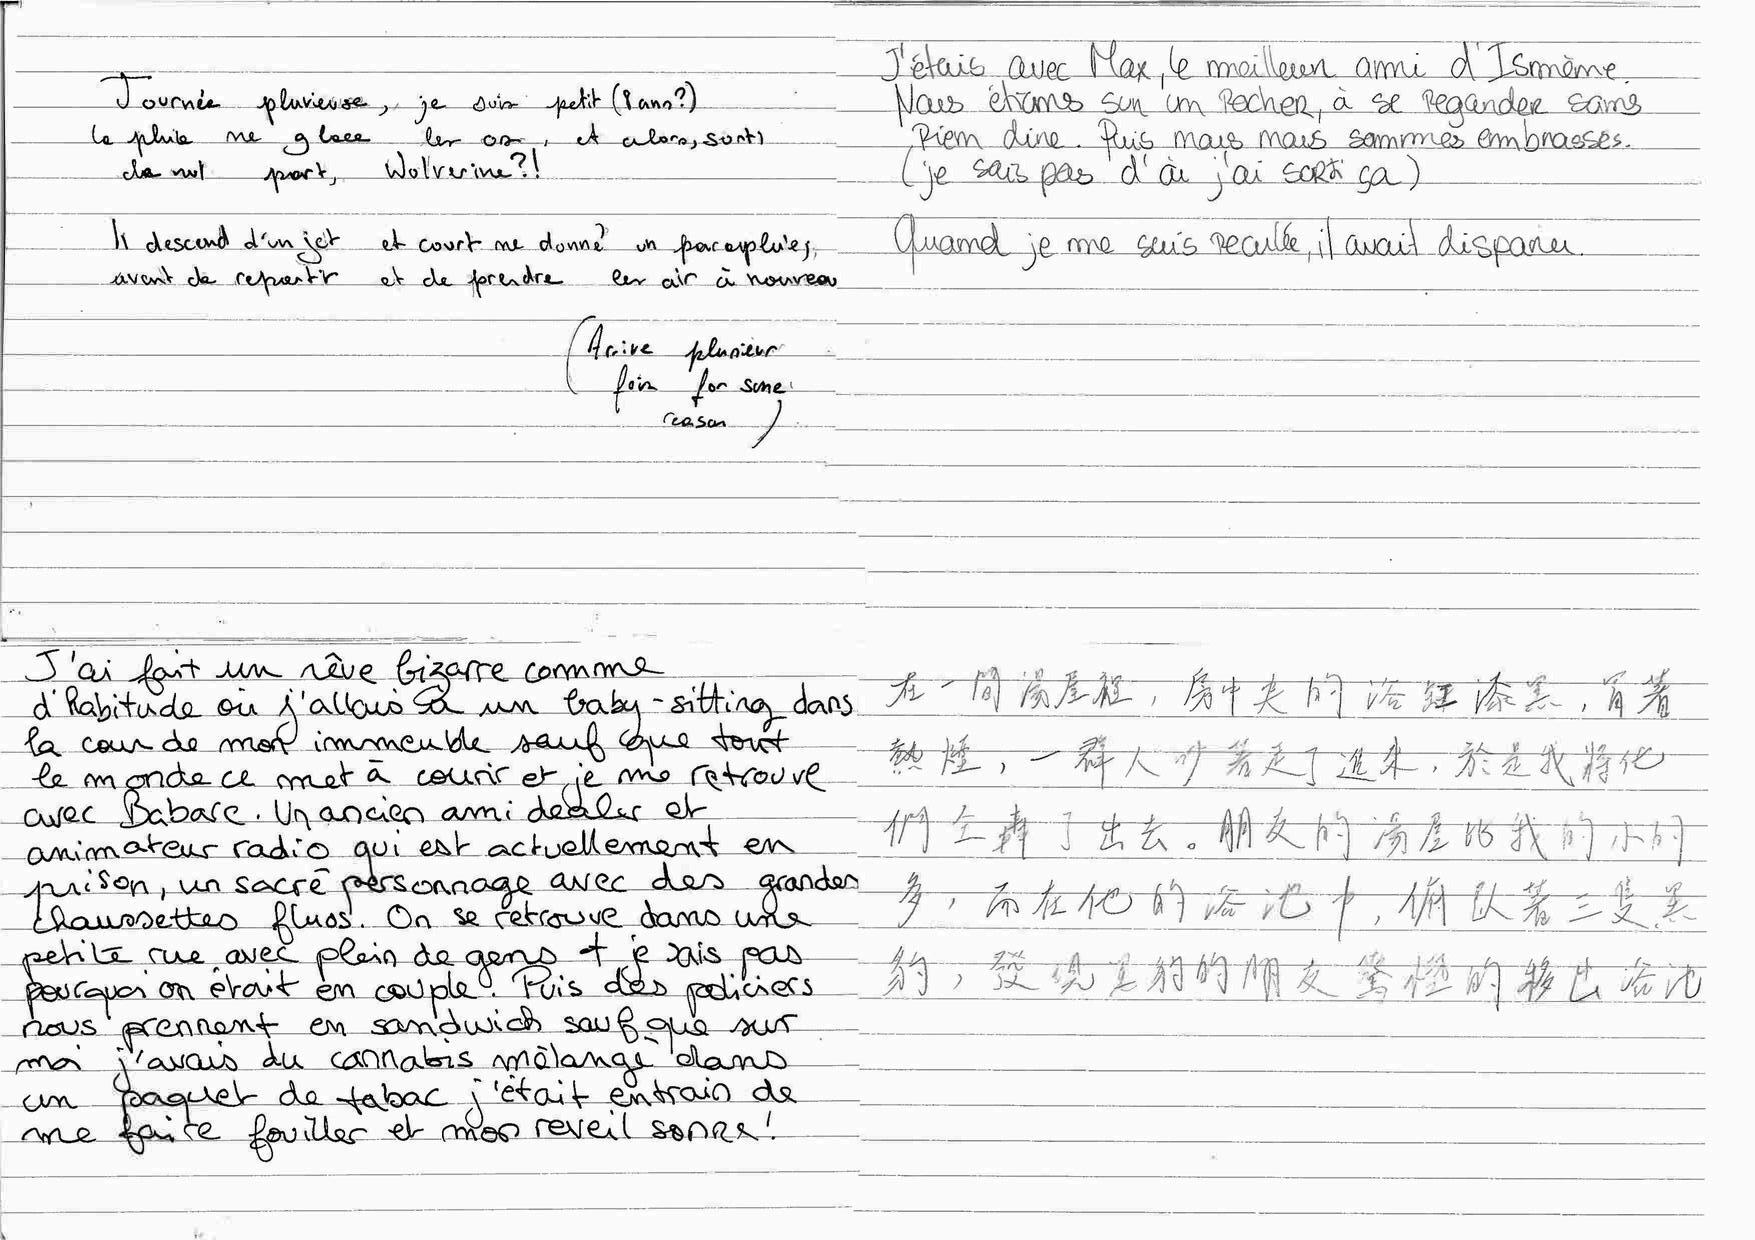 Journée pluvieuse, je suis petit (8 ans?)
la pluie me glace les os, et alors, sorti
de nul part, Wolverine?!
Il descend d'un jet et court me donné un parapluies,
avant de repartir et de prendre les air à nouveau
(Arrive plusieur
fois for some
reason)
J'étais avec Max, le meilleur ami d'Ismène.
Nous étions sur un rocher, à se regarder sans
rien dire. Puis nous nous sommes embrassés.
(je sais pas d'où j'ai sorti ça)
Quand je me suis reculée, il avait disparu.
J'ai fait un rêve bizarre comme
d'habitude où j'allais à un baby-sitting dans
la cour de mon immeuble sauf que tout
le monde ce met à courir et je me retrouve
avec Babare. Un ancien ami dealer et
animateur radio qui est actuellement en
prison, un sacré personnage avec des grandes
chaussettes fluos. On se retrouve dans une
petite rue avec plein de gens + je sais pas
pourquoi on était en couple. Puis des policiers
nous prennent en sandwich sauf que sur
moi j'avais du cannabis mélangé dans
un paquet de tabac j'était entrain de
me faire fouiller et mon reveil sonne!
在一間湯屋裡，房中央的浴缸漆黑，冒著
熱煙，一群人吵著走了進來，於是我將他
們全轟了出去。朋友的湯屋比我的小的
多，而在他的浴池中，俯臥著三隻黑
豹，發現黑豹的朋友驚慌的移出浴池